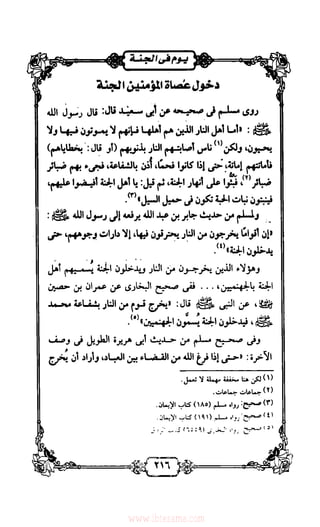 يوم في الجنة
دخول عصاة المؤمنين الجنة
روى مسلم في صحيحه عن أبي سعيد قال: قال رسول الله
ﷺ: «أما أهل النار الذين هم أهلها فإنهم لا يموتون فيها ولا
يحيون، ولكن(١) ناس أصابتهم النار بذنوبهم (أو قال: بخطاياهم)
فأماتتهم إماتة، حتى إذا كانوا فحمًا، أذن بالشفاعة، فجيء بهم ضبائر
ضبائر(٢)، فبثوا على أنهار الجنة، ثم قيل: يا أهل الجنة أفيضوا عليهم،
فينبتون نبات الحبة تكون في حميل السيل»(٣).
ولمسلم من حديث جابر بن عبد الله يرفعه إلى رسول الله ﷺ:
«إن أقوامًا يخرجون من النار يحترقون فيها، إلا دارات وجوههم، حتى
يدخلون الجنة»(٤).
وهؤلاء الذين يخرجون من النار ويدخلون الجنة يُسميهم أهل
الجنة بالجهنميين، . . . ففي صحيح البخاري عن عمران بن حصين
، عن النبي ﷺ قال: «يخرج قوم من النار بشفاعة محمد
ﷺ، فيدخلون الجنة يُسمَّون الجهنميين»(٥).
وفي صحيح مسلم من حديث أبي هريرة الطويل في وصف
الآخرة: «حتى إذا فرغ الله من القضاء بين العباد، وأراد أن يُخرج
(١) لكن هنا مخففة مهملة لا تعمل.
(٢) جماعات جماعات.
(٣) صحيح: رواه مسلم (١٨٥) كتاب الإيمان.
(٤) صحيح: رواه مسلم (١٩١) كتاب الإيمان.
(٥) صحيح: رواه البخاري (٦٥٥٩) كتاب الرقاق
٢١٦